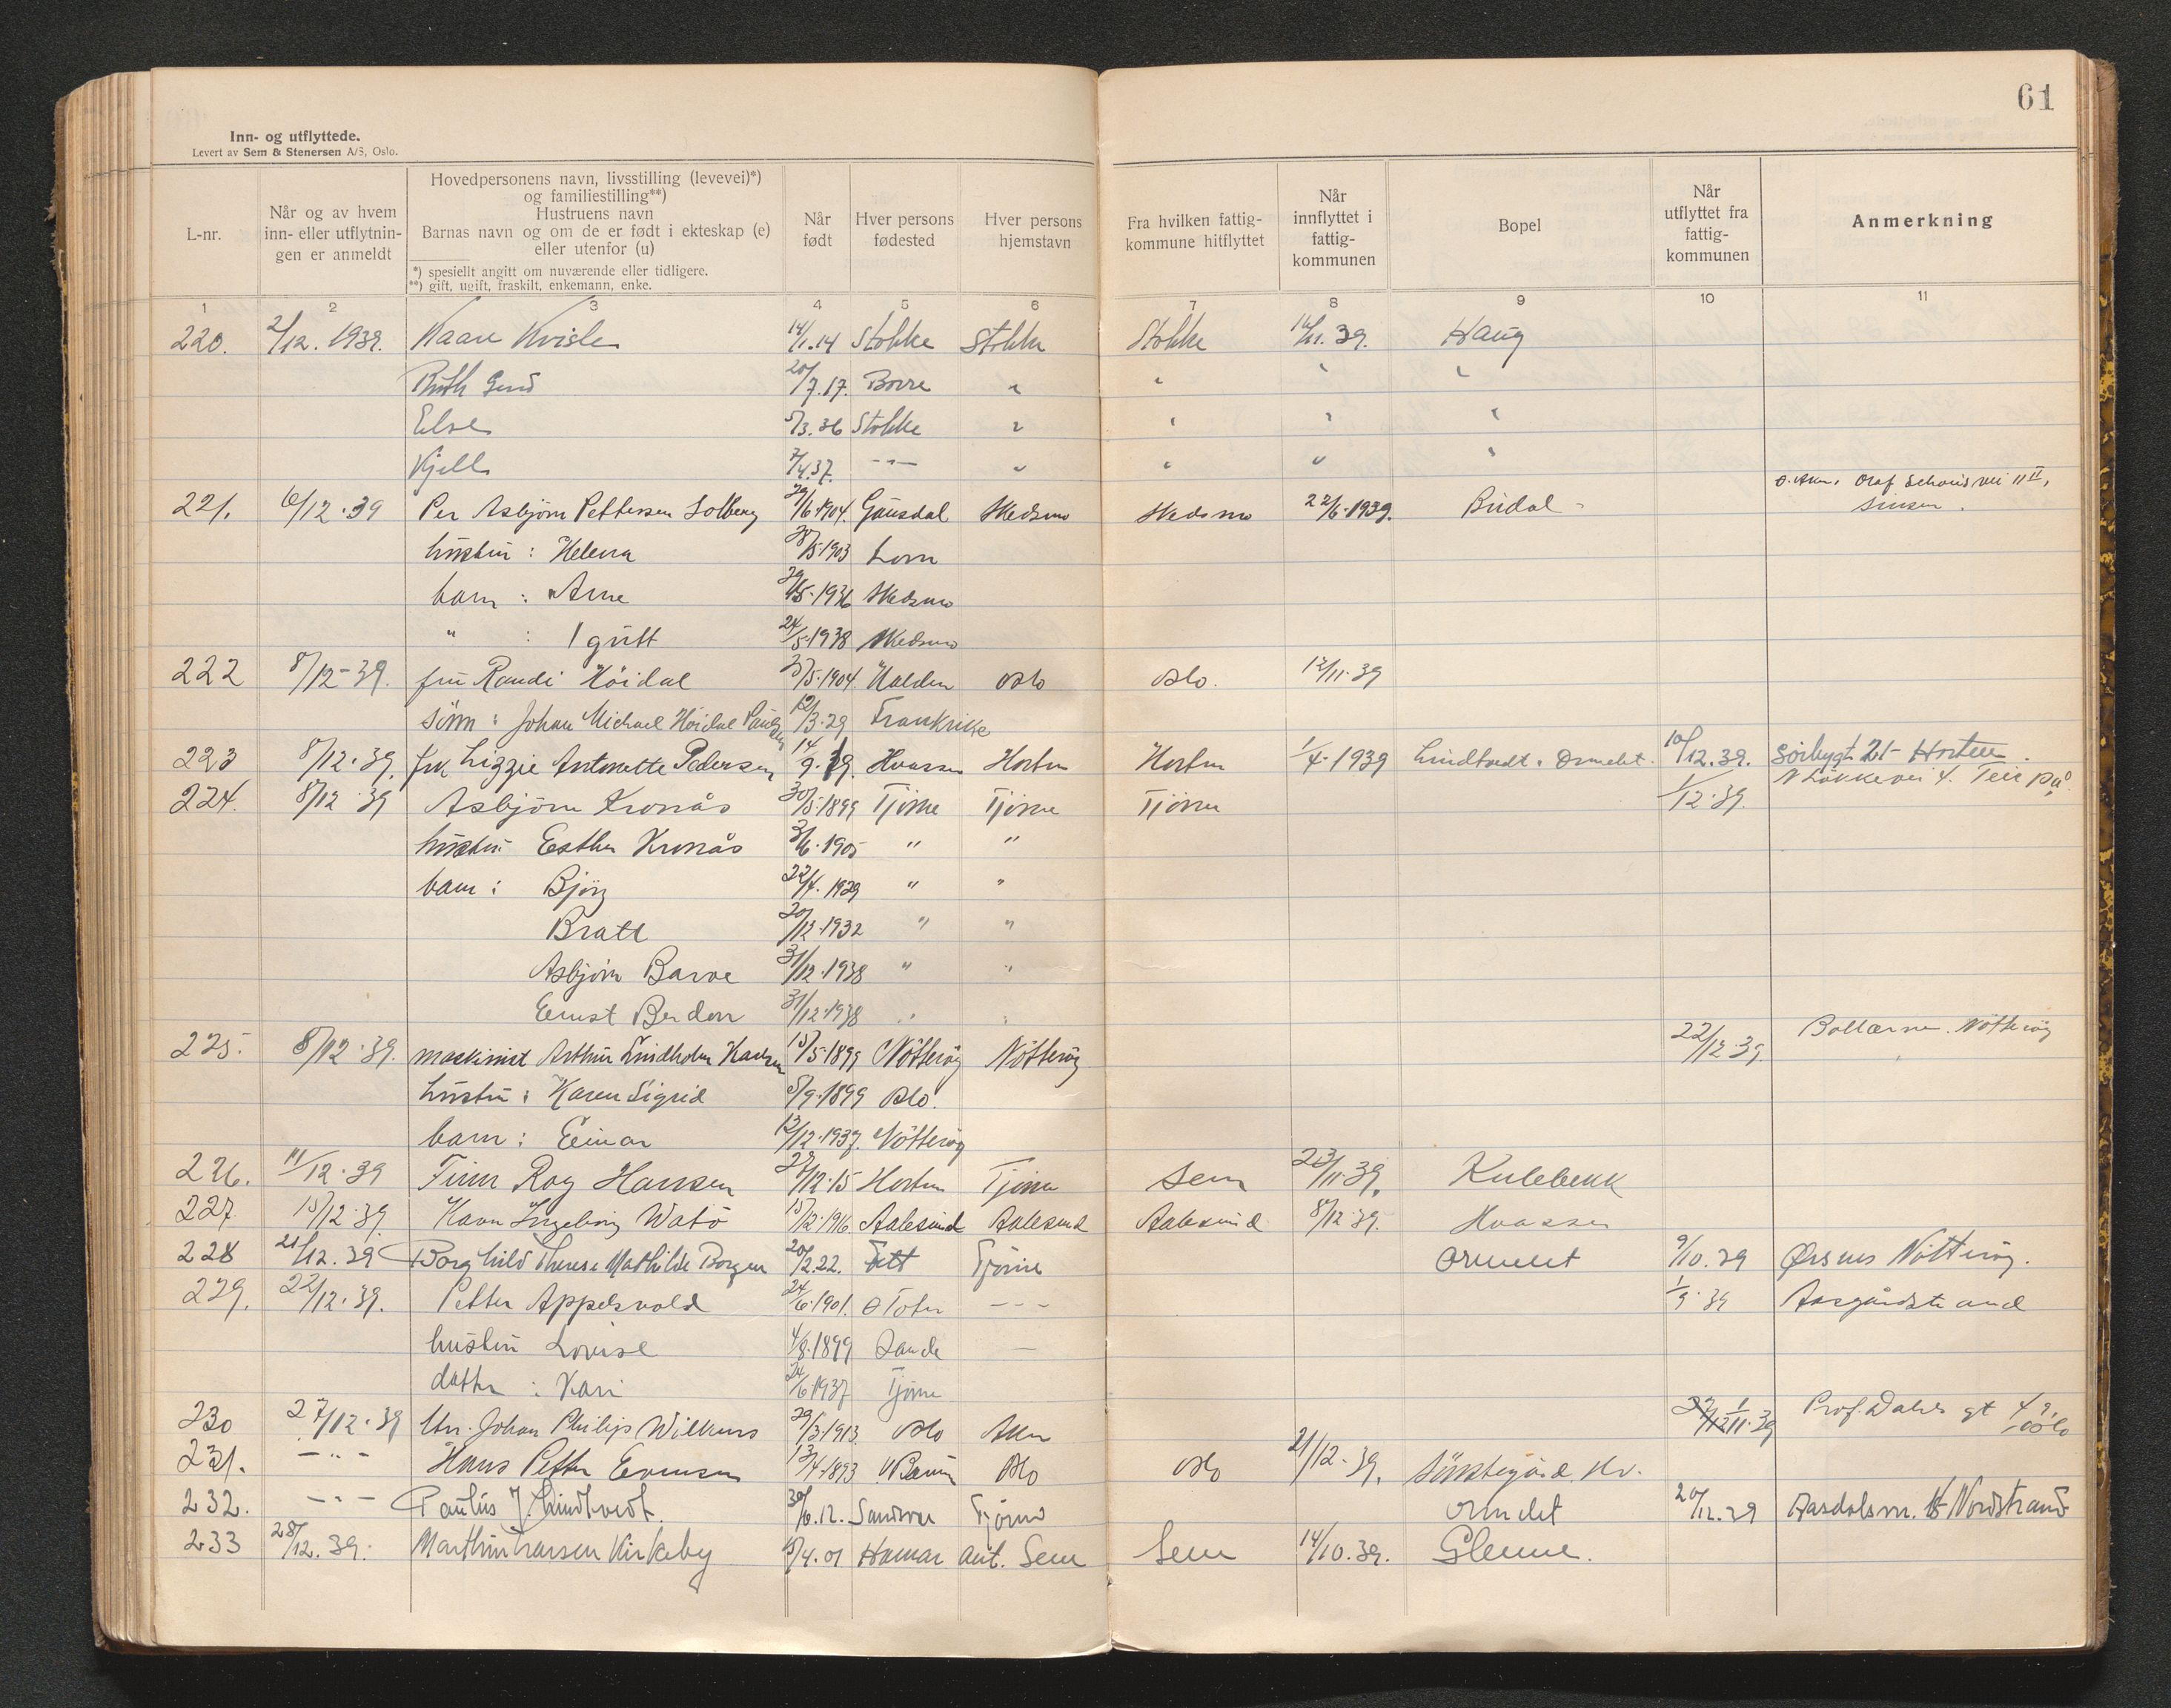 61
Inn- og utflyttede.
Levert av Sem & Stenersen A/S, Oslo.
L-nr.
Når og av hvem inn- eller utflytnin- gen er anmeldt
Hovedpersonens navn, livsstilling (levevei)*) og familiestilling**) Hustruens navn Barnas navn og om de er født i ekteskap (e) eller utenfor (u)
*) spesiellt angitt om nuværende eller tidligere.
**) gift, ugift, fraskilt, enkemann, enke.
Når født
Hver persons fødested
Hver persons hjemstavn
Fra hvilken fattig- kommune hitflyttet
Når innflyttet i fattig- kommunen
Bopel
Når utflyttet fra fattig- kommunen
Anmerkning
1 2 3 4 5 6 7 8 9 10 11
220. 2/12. 1939. Kaare Kvisle 14/1.14 Stokke Stokke Stokke 39. Haug
Ruth 20/7.17. Borre "
Else 5/3.36 Stokke "
Kjell 7/4.37. -"- "
221. 6/12.39 Per Asbjørn Pettersen Solberg 29/6.1904. Gausdal Skedsmo Skedsmo 22/6.1939. Budal Ø. Aker, Olaf Schous vei 11 II, Sinsen.
hustru : Helena 28/5.1903 Lom
barn : Arne 1936 Skedsmo
" : 1 gutt 24/5.1938 Skedsmo
222 8/12-39. fru Randi Höidal 1904. Halden Oslo Oslo. 12/11.39
sönn : Johan Michael Höidal 12/3.29 Frankrike
223 8/12.39. frk Lizzie Antonette Pedersen 14/9. 19. Hvasser Horten Horten 1/4.1939 Lindtvedt. Ormelet. 10/12.39. Sörbygt 21- Horten.
224. 8/12.39 Asbjörn Kronås 30/5.1899 Tjöme Tjöme Tjöme 1/12.39. Løkkevei 4. Teie på
hustru Esther Kronås 1905 " "
barn : Björg 22/4.1929 " "
Bratt 20/12.1932 " "
Asbjörn Barve 31/12.1938 " "
Ernst Berdon 31/12.1938 " "
225. 8/12.39. maskinist Arthur Lindholm 15/5.1899 Nötteröy Nötteröy 22/12.39. Bollærne. Nötteröy
hustru : Karen Sigrid 5/9.1899 Oslo.
barn : Einar 12/12.1937. Nötteröy
226. 11/12.39 Finn Roy Hansen 27/12.15 Horten Tjöme Sem 23/11.39. Kulebekk
227. 15/12.39. Ingeborg Watö 15/12.1916. Aalesund Aalesund Aalesund 8/12.39. Hvasser
228 21/12.39 Borghild Therese Mathilde Borgen 20/2.22. Tjöme Ormelet 9/10.39 Ørsnes Nötteröy.
229. 22/12.39. Petter Appelsvold 24/6.1901. Ø Toten --- 1/9.39 Aasgårdstrand
hustru Lovise 4/8.1899 Sande -
datter : Kari 24/6 1937 Tjöme
230 27/12.39 Johan Philip Wilkens 29/3.1913. Oslo Aker 1/11.39 Prof. Dahls gt 49, Oslo
231. -"- Hans Petter Evensen 13/4.1893 Oslo Oslo 21/12.39.
232. -"- Paulus J. Lindtvedt. 30/6.12. Tjöme Ormelet 20/12.39 Nordstrand
233 28/12.39. Marthin Larsen Kirkeby 4.01 Hamar ant. Sem Sem 14/10.39. Glenne.